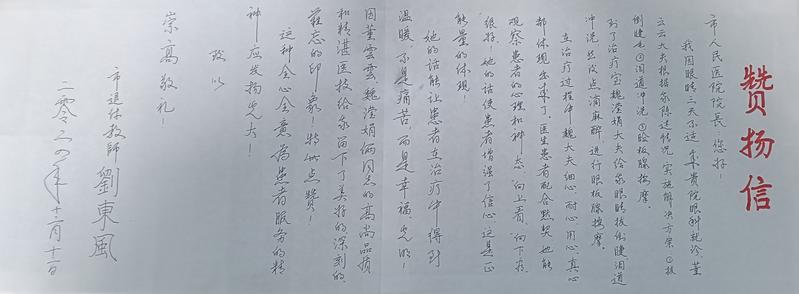 赞扬信
市人民医院院长 您好！
我因眼睛三天不适 来贵院眼科就诊，董
立云大夫根据我陈述情况 实施解决方案①拔
倒睫毛②泪道冲洗③睑板腺按摩。
到了治疗室魏滢娟大夫给我眼睛拔倒睫泪道
冲洗然后点滴麻醉，进行眼板腺按摩。
在治疗过程中魏大夫细心、耐心、用心、真心
都体现出来了。医生患者配合默契她能
观察患者的心理和神态、向上看、向下看、
很好！她的话使患者增强了信心这是正
能量的体现！
她的话能让患者在治疗中得到
温暖，不是痛苦，而是幸福光明！
因董雲雲魏滢娟俩同志的高尚品质
和精湛医技给我留下了美好的深刻的
难忘的印象，特此点赞！
这种全心全意为患者服务的精
神应发扬光大！
致以
崇高敬礼！
市退休教师 劉東風
二零二四年十二月十二日